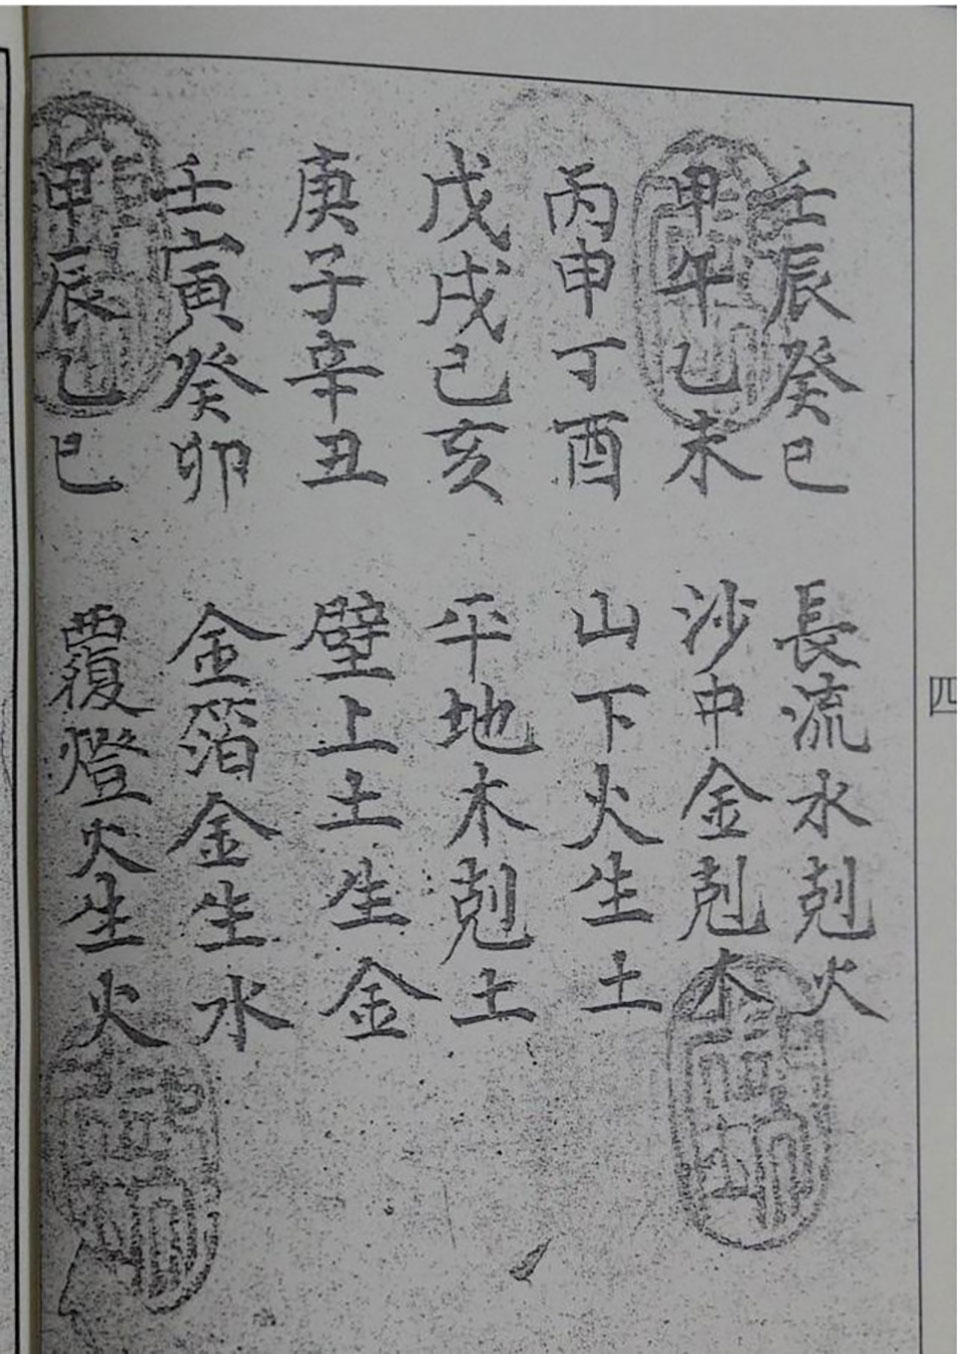 壬辰癸巳 長流水剋火
甲午乙未 沙中金剋木
丙申丁酉 山下火生土
戊戌己亥 平地木剋土
庚子辛丑 壁上土生金
壬寅癸卯 金箔金生水
甲辰乙巳 覆燈火生火
四